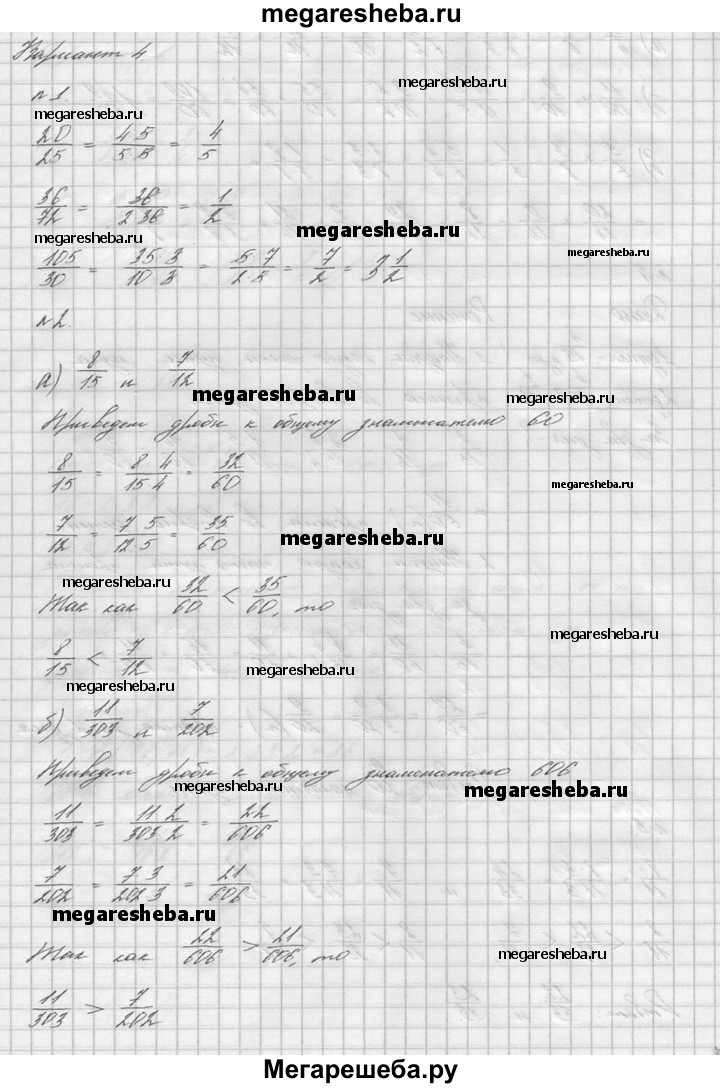 megaresheba.ru
Вариант 4
megaresheba.ru
№1.
megaresheba.ru
20/25 = 4·5/5·5 = 4/5
36/72 = 36/2·36 = 1/2
megaresheba.ru
megaresheba.ru
megaresheba.ru
105/30 = 35·3/10·3 = 5·7/2·5 = 7/2 = 3 1/2
№2.
а) 8/15 и 7/12
megaresheba.ru
megaresheba.ru
Приведем дроби к общему знаменателю 60
8/15 = 8·4/15·4 = 32/60
megaresheba.ru
7/12 = 7·5/12·5 = 35/60
megaresheba.ru
megaresheba.ru
Так как 32/60 < 35/60, то
megaresheba.ru
8/15 < 7/12
megaresheba.ru
megaresheba.ru
б) 11/303 и 7/202
Приведем дроби к общему знаменателю 606
megaresheba.ru
megaresheba.ru
11/303 = 11·2/303·2 = 22/606
7/202 = 7·3/202·3 = 21/606
megaresheba.ru
Так как 22/606 > 21/606, то
megaresheba.ru
11/303 > 7/202
Мегарешеба.ру